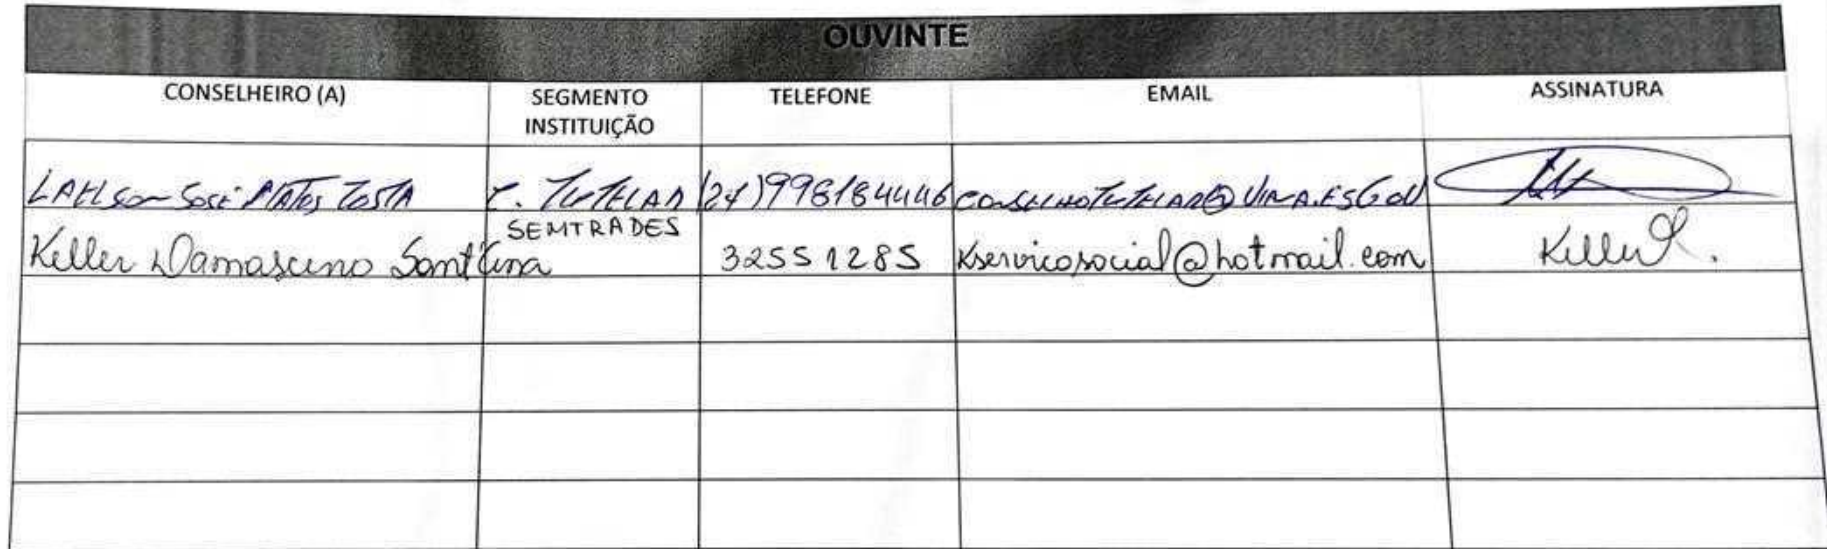 OUVINTE
CONSELHEIRO (A) SEGMENTO INSTITUIÇÃO TELEFONE EMAIL ASSINATURA
José Matos C. TUTELAR 998184446
Keller Damasceno Sant'Ana SEMTRADES 32551285 Kservicosocial@hotmail.com Keller